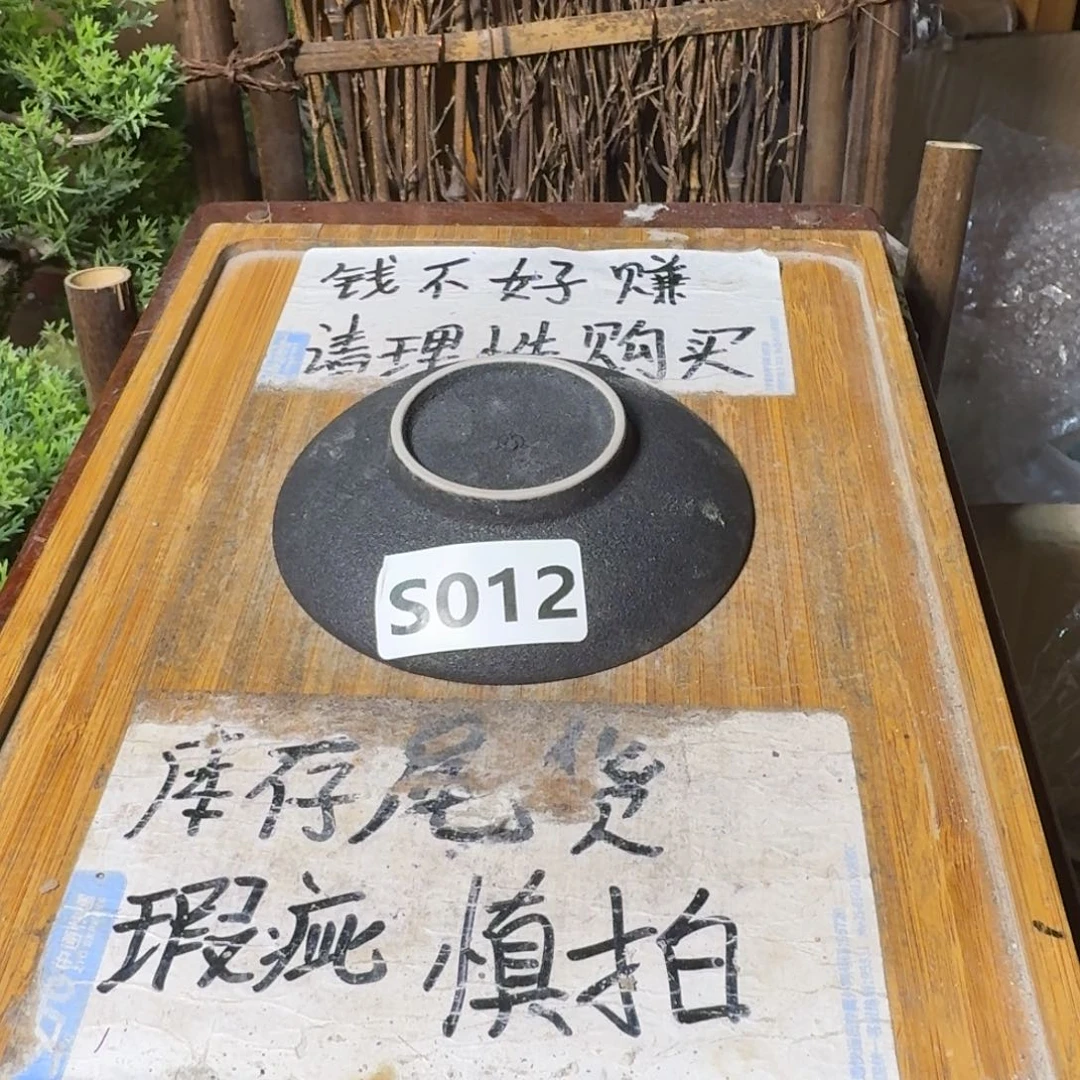 钱不好赚
请理性购买
S012
库存尾货
瑕疵慎拍